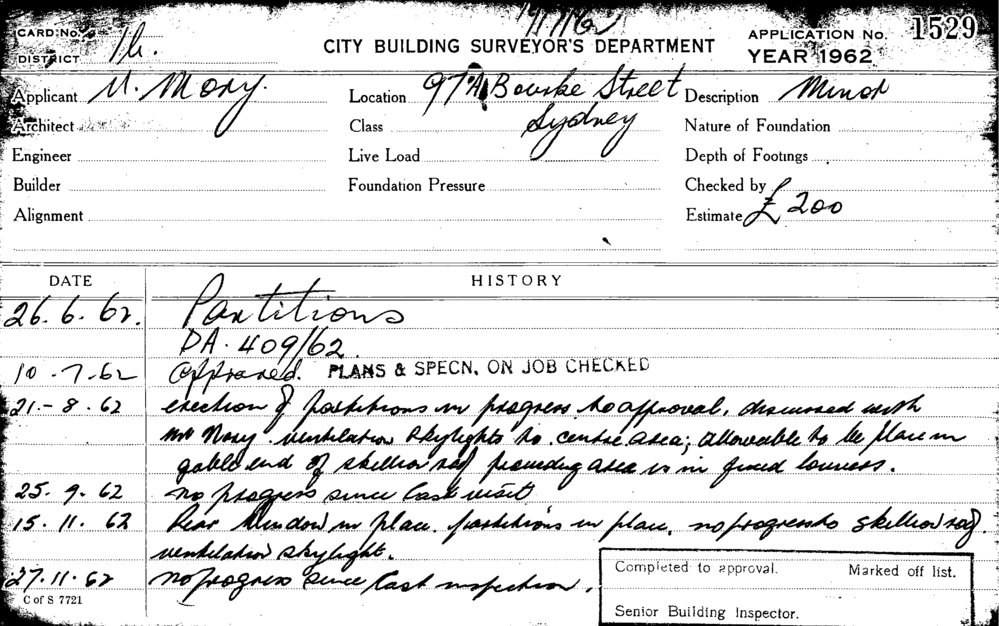 CARD No.
DISTRICT
19/7/62
CITY BUILDING SURVEYOR'S DEPARTMENT
APPLICATION No. 1529
YEAR 1962
Applicant
Location 97A Bourke Street
Sydney
Description Minor
Architect
Class
Nature of Foundation
Engineer
Live Load
Depth of Footings
Builder
Foundation Pressure
Checked by
Alignment
Estimate £ 200
DATE HISTORY
26.6.62. Partitions
DA. 409/62
10.7.62 Approved. PLANS & SPECN. ON JOB CHECKED
21.-8.62 erection of partitions in progress to approval, discussed with
Mr ventilation skylights to centre area; allowable to be place in
gable end of skellion roof providing area is in fixed louvers.
25.9.62 no progress since last visit
15.11.62 Rear Window in place. partitions in place, no progress to skellion roof
ventilation skylight.
27.11.62 no progress since last inspection.
C of S 7721
Completed to approval. Marked off list.
Senior Building Inspector.